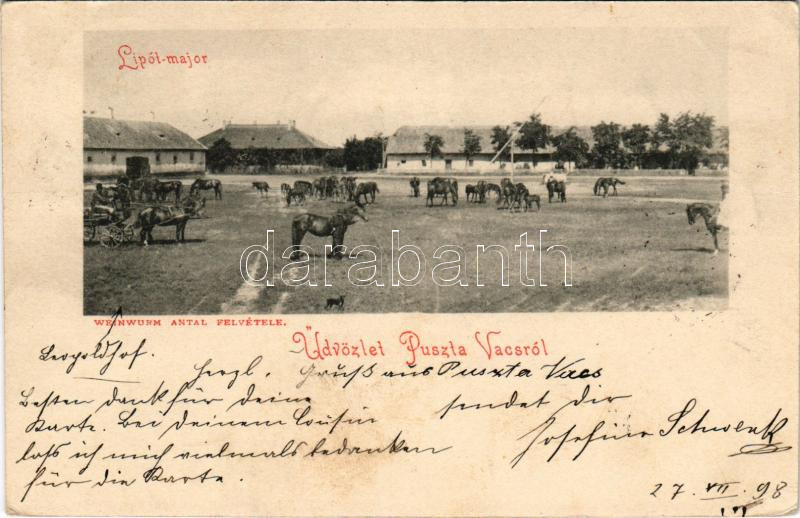 Lipót-major
darabanth
WEINWURM ANTAL FELVÉTELE.
Üdvözlet Puszta Vacsról
Leopoldhof.
Herzl. Gruß aus Puszta Vacs
Besten dank für deine sendet dir
Karte. Bei deinem Cousin Josefine Schwenk
laß ich mich vielmals bedanken
für die Karte.
27. VII. 98